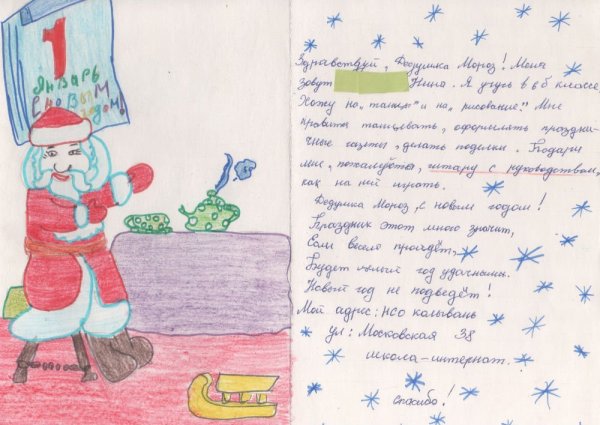 1
Январь
С новым
годом!
Здравствуй, Дедушка Мороз! Меня
зовут Нина. Я учусь в 6 б классе,
Хожу на „танцы" и на „рисование". Мне
нравится танцевать, оформлять празднич-
ные газеты, делать поделки. Подари
мне, пожалуйста, гитару с руководством,
как на ней играть.
Дедушка Мороз, с новым годом!
Праздник этот много значит,
Если весело пройдёт,
Будет целый год удачным.
Новый год не подведёт!
Мой адрес: НСО колывань
ул: Московская 38
школа-интернат.
Спасибо!